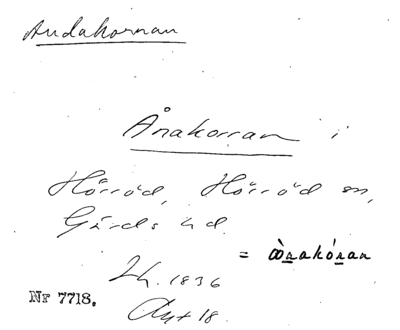 Andakornan
Ånakorran i
Hörröd, Hörröd sn,
Gärds hd.
= ånakónan
Lh. 1836
Akt 18.
Nr 7718.